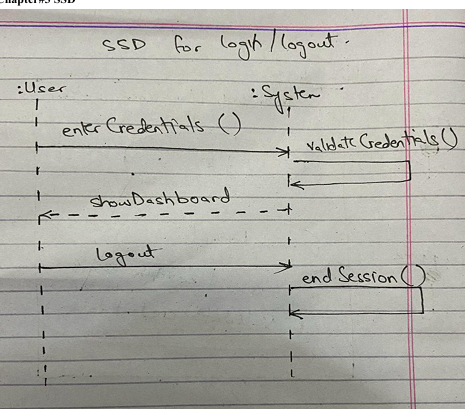 Chapter#3 SSD
SSD for login/logout.
:User
:System
enterCredentials ()
validateCredentials()
showDashboard
logout
endSession()